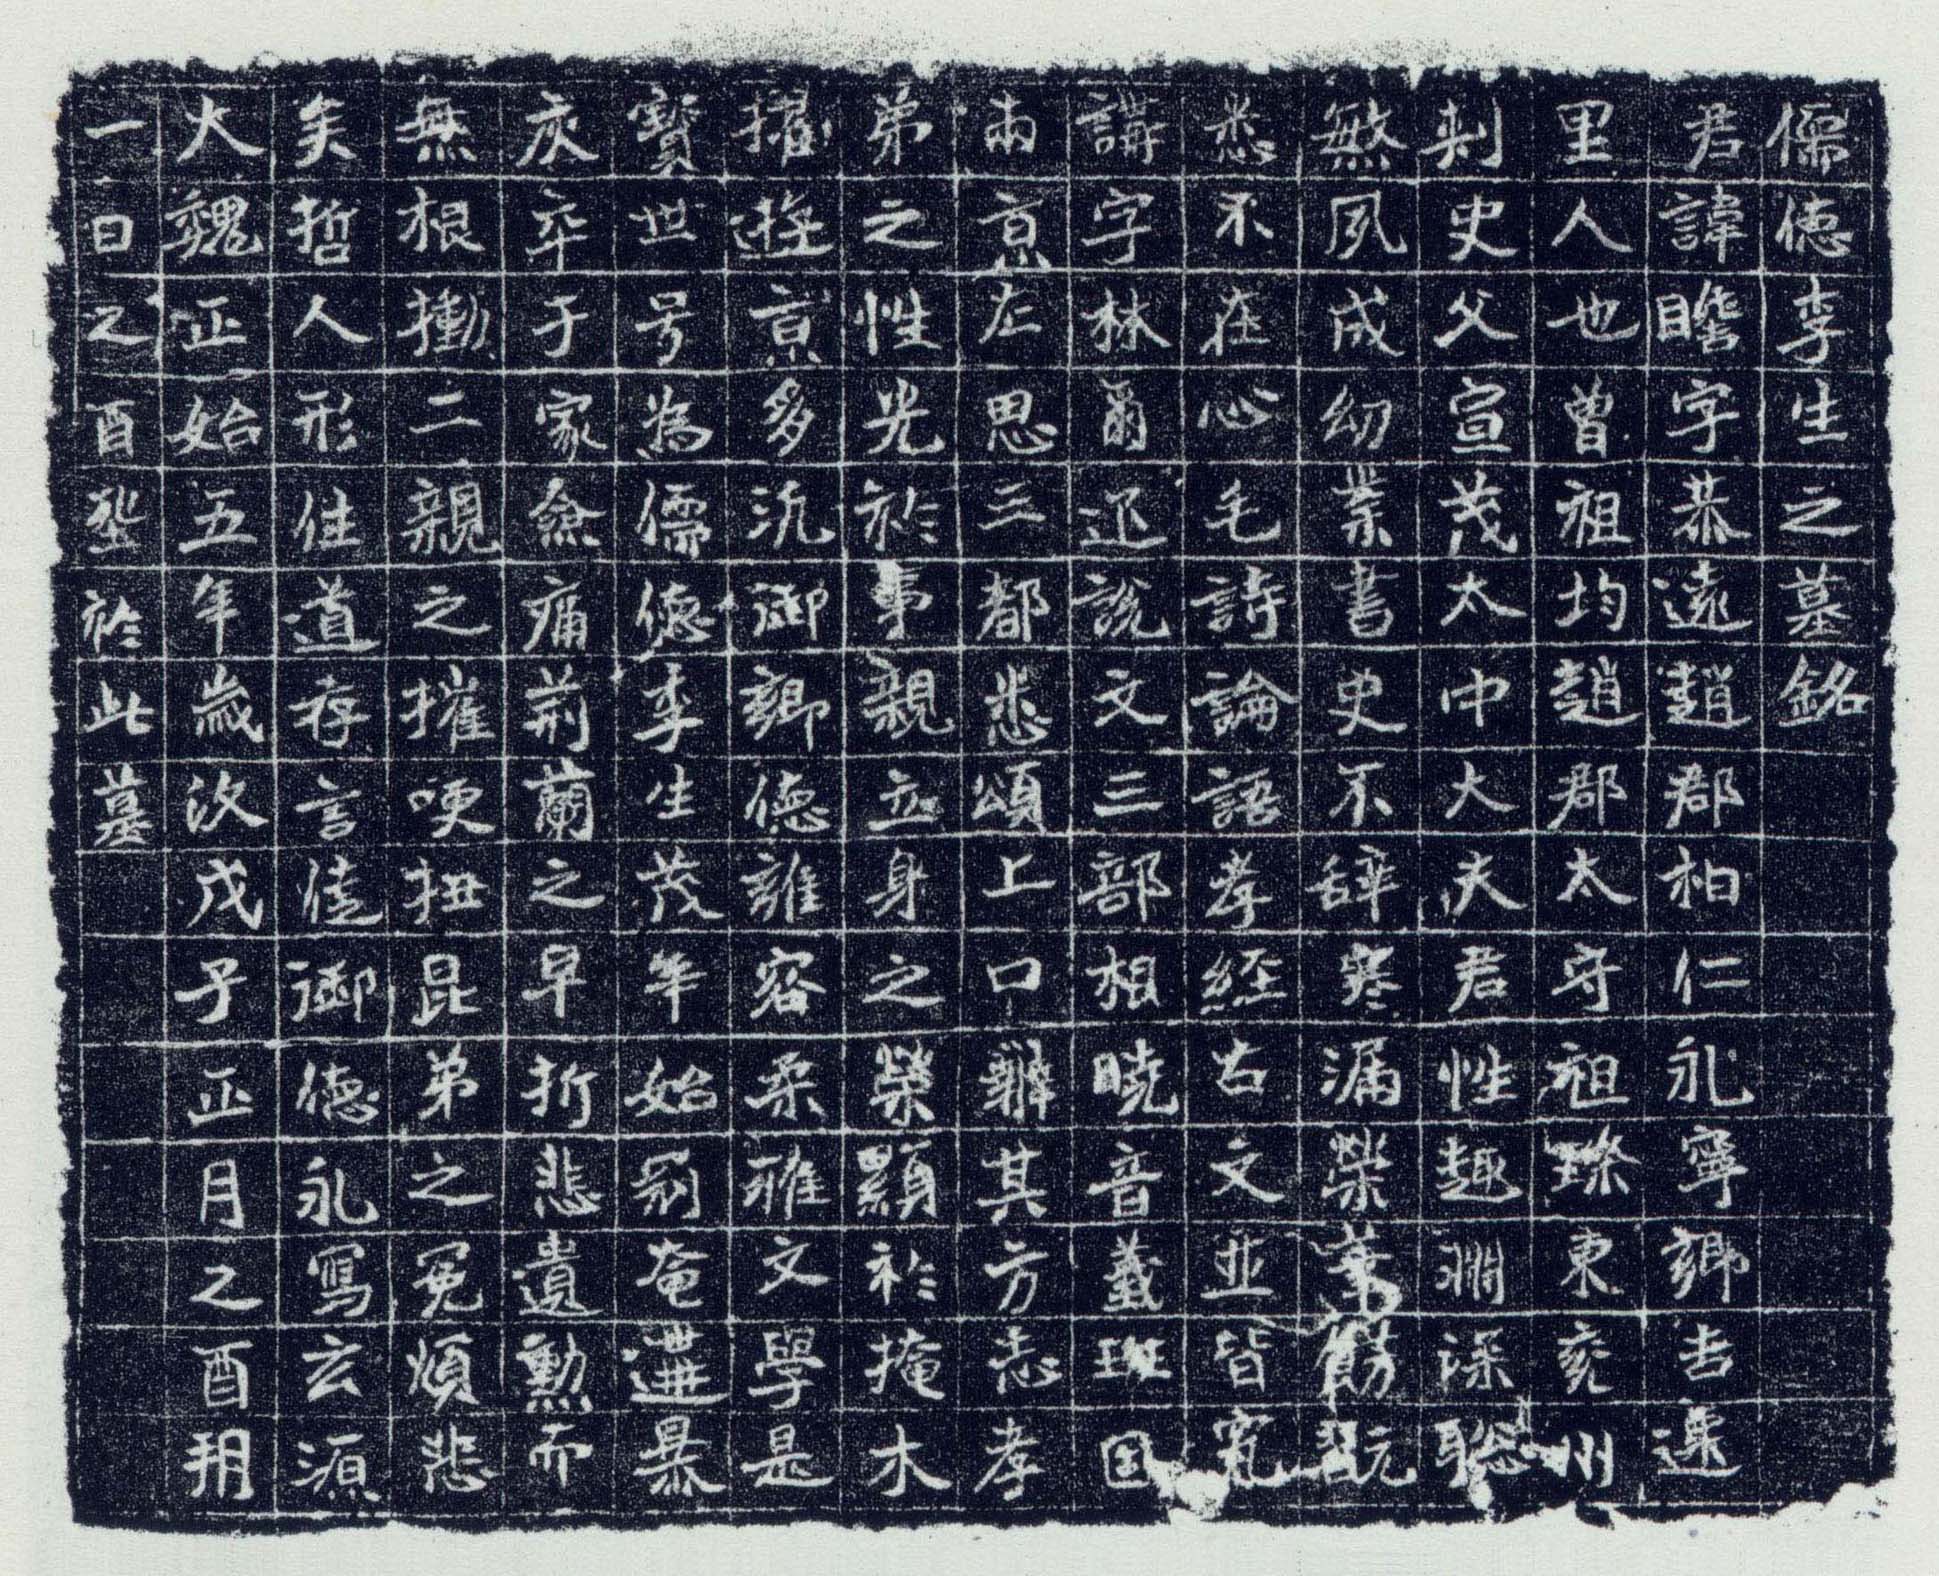 儒德李生之墓銘
君諱瞻字恭遠趙郡柏仁永寧鄉吉遷
里人也曾祖均趙郡太守祖璨東兗州
刺史父宣茂太中大夫君性趣淵深聡
繁夙成幼業書史不辞寒漏榮葉筋翫
悉不在心毛詩論語孝經古文並皆究
講字林爾迩說文三部相曉音義班固
兩京左思三都悉頌上口辯其方志孝
弟之性光於事親立身之榮顯於掩木
擢遊京多沉御鄉德雍容柔雅文學是
寶世号為儒德李生茂年始冠奄遘暴
疾卒于家僉痛荊蘭之早折悲遺勲而
無根慟二親之摧哽扭昆弟之冤煩悲
矣哲人形往道存言佳御德永寫玄源
大魏正始五年歲次戊子正月之酉朔
一日之酉埊於此墓